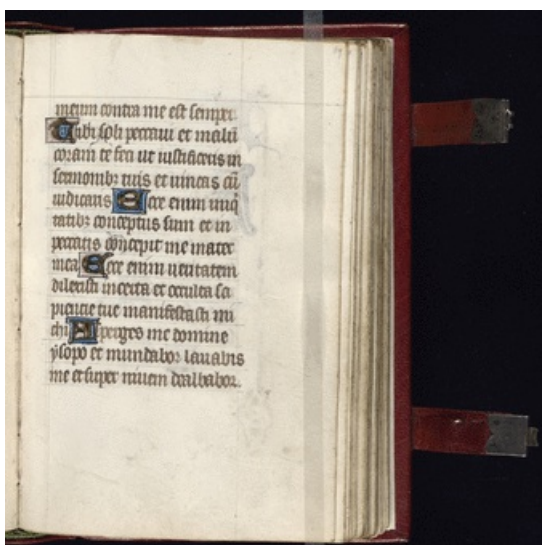 meum contra me est semper.
Tibi soli peccaui et malū
coram te feci ut iustificeris in
sermonibꝫ tuis et uincas cū
iudicaris Ecce enim iniqͥ
tatibꝫ conceptus sum et in
peccatis concepit me mater
mea Ecce enim ueritatem
dilexisti incerta et occulta sa
piencie tue manifestasti mi
chi Asperges me domine
ysopo et mundabor lauabis
me et super niuem dealbabor.